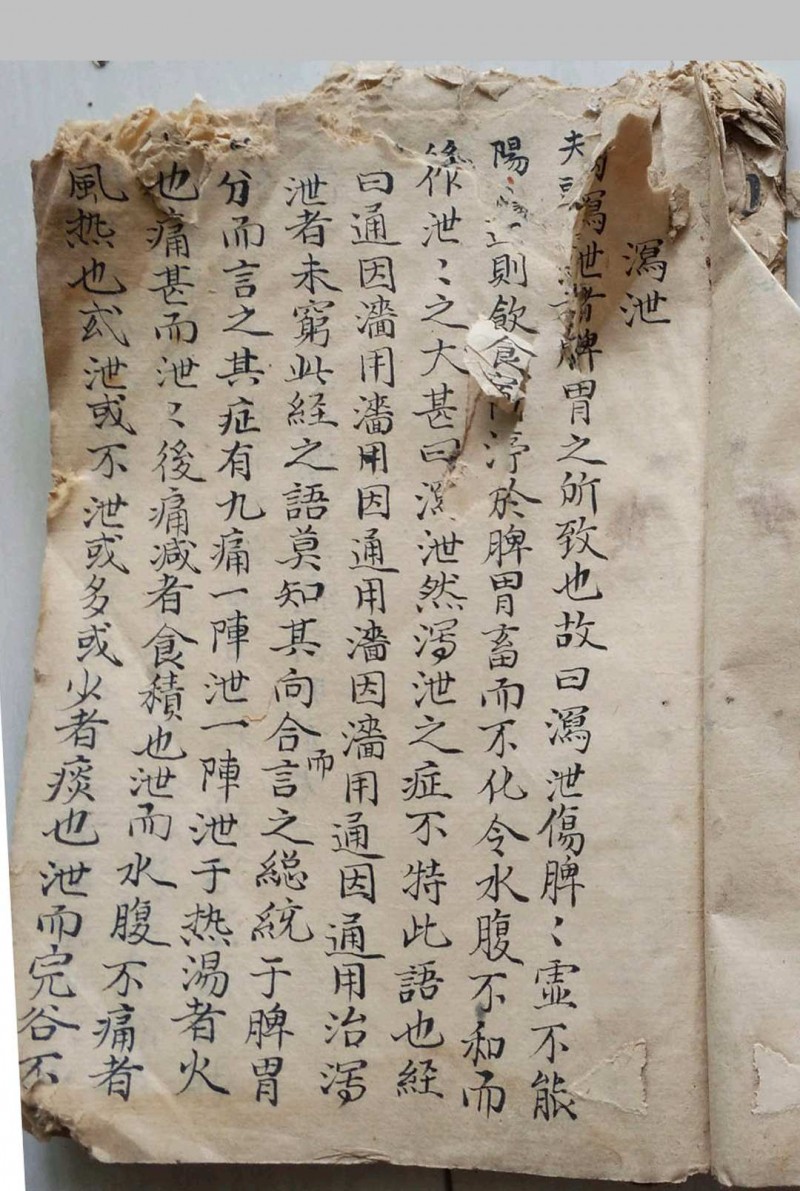 瀉泄
夫瀉泄者脾胃之所致也故曰瀉泄傷脾〻虛不能
陽則飲食停於脾胃畜而不化令水腹不和而
作泄〻之大甚曰瀉泄然瀉泄之症不特此語也経
曰通因濇用濇用因通用濇因濇用通因通用治瀉
泄者未窮此経之語莫知其向合而言之総統于脾胃
分而言之其症有九痛一陣泄一陣泄于热湯者火
也痛甚而泄〻後痛减者食積也泄而水腹不痛者
風热也或泄或不泄或多或少者痰也泄而完谷不